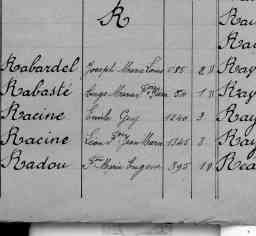 R
Rabardel Joseph Marie Louis 585 2
Rabasté Marie 50 1
Racine Emile Guy 1240 3
Racine Léon Jean Marie 1345 2
Radou Marie Eugène 395 18
Ra
Ra
Ray
Ray
Ray
Ray
Rea